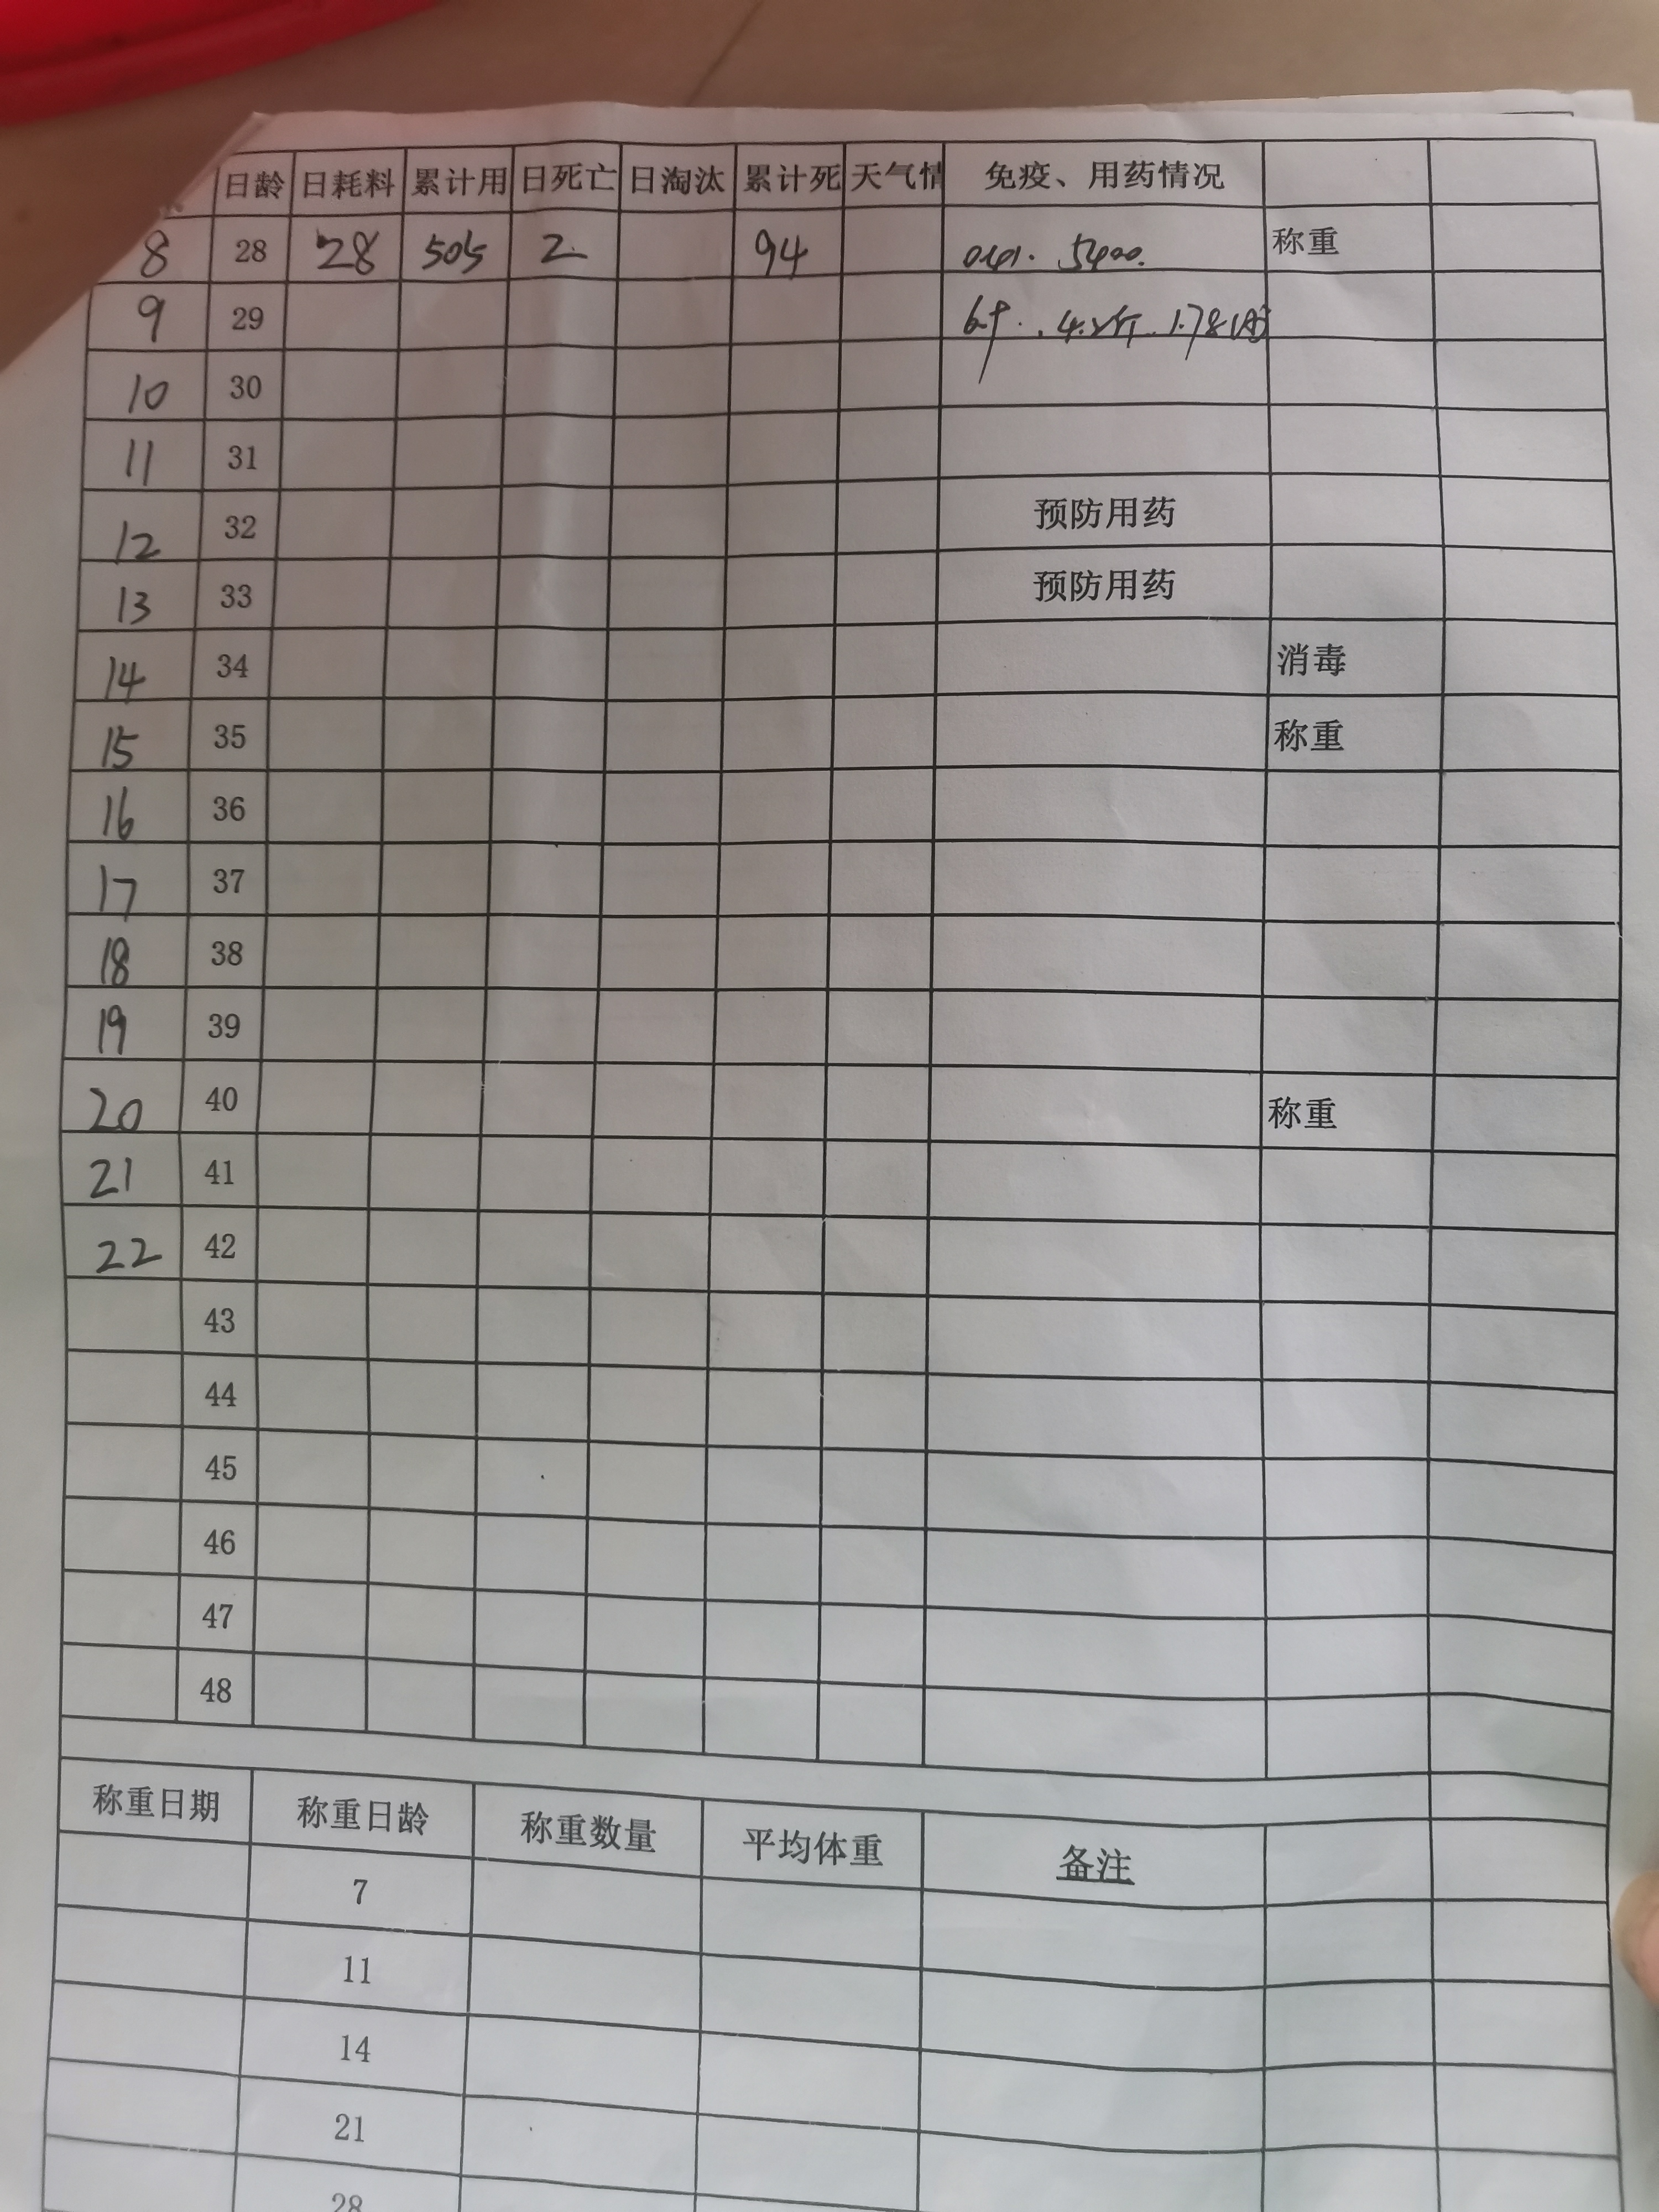 日龄 日耗料 累计用 日死亡 日淘汰 累计死 天气情 免疫、用药情况
8 28 28 505 2 94 5400. 称重
9 29 1.78
10 30
11 31
12 32 预防用药
13 33 预防用药
14 34 消毒
15 35 称重
16 36
17 37
18 38
19 39
20 40 称重
21 41
22 42
43
44
45
46
47
48
称重日期 称重日龄 称重数量 平均体重 备注
7
11
14
21
28